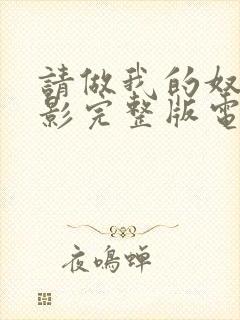 請做我的奴
影完整版電
夜鳴蟬